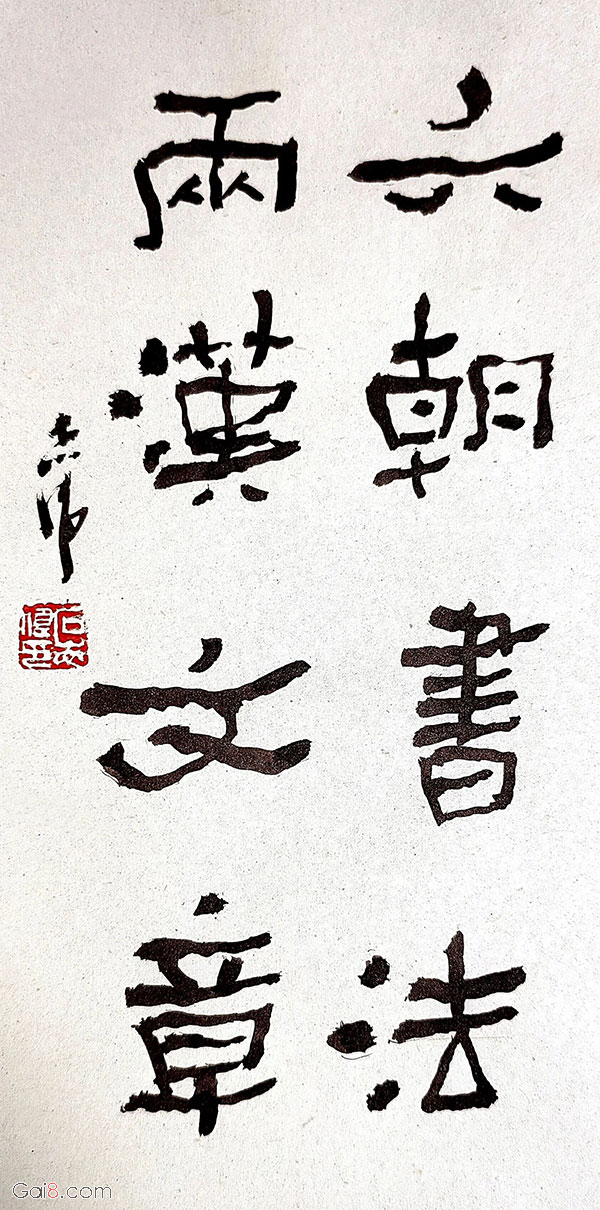 六朝書法
兩漢文章
Gai8.com